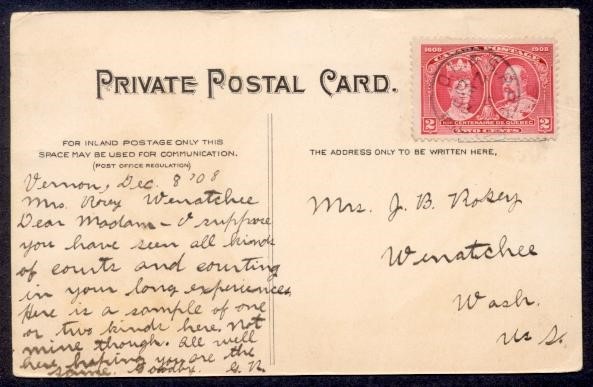 1608 CANADA POSTAGE 1908
IIIe CENTENAIRE DE QUEBEC
2 TWO CENTS 2
PRIVATE POSTAL CARD.
FOR INLAND POSTAGE ONLY THIS
SPACE MAY BE USED FOR COMMUNICATION.
(POST OFFICE REGULATION)
THE ADDRESS ONLY TO BE WRITTEN HERE,
Vernon, Dec. 8 '08
Mrs. Wenatchee
Dear Madam - I suppose
you have seen all kinds
of courts and courting
in your long experiences
Here is a sample of one
or two kinds here, not
mine though. All well
here hoping you are the
same. Goodby. G. R.
Mrs. J. B. Rokey
Wenatchee
Wash.
U S.